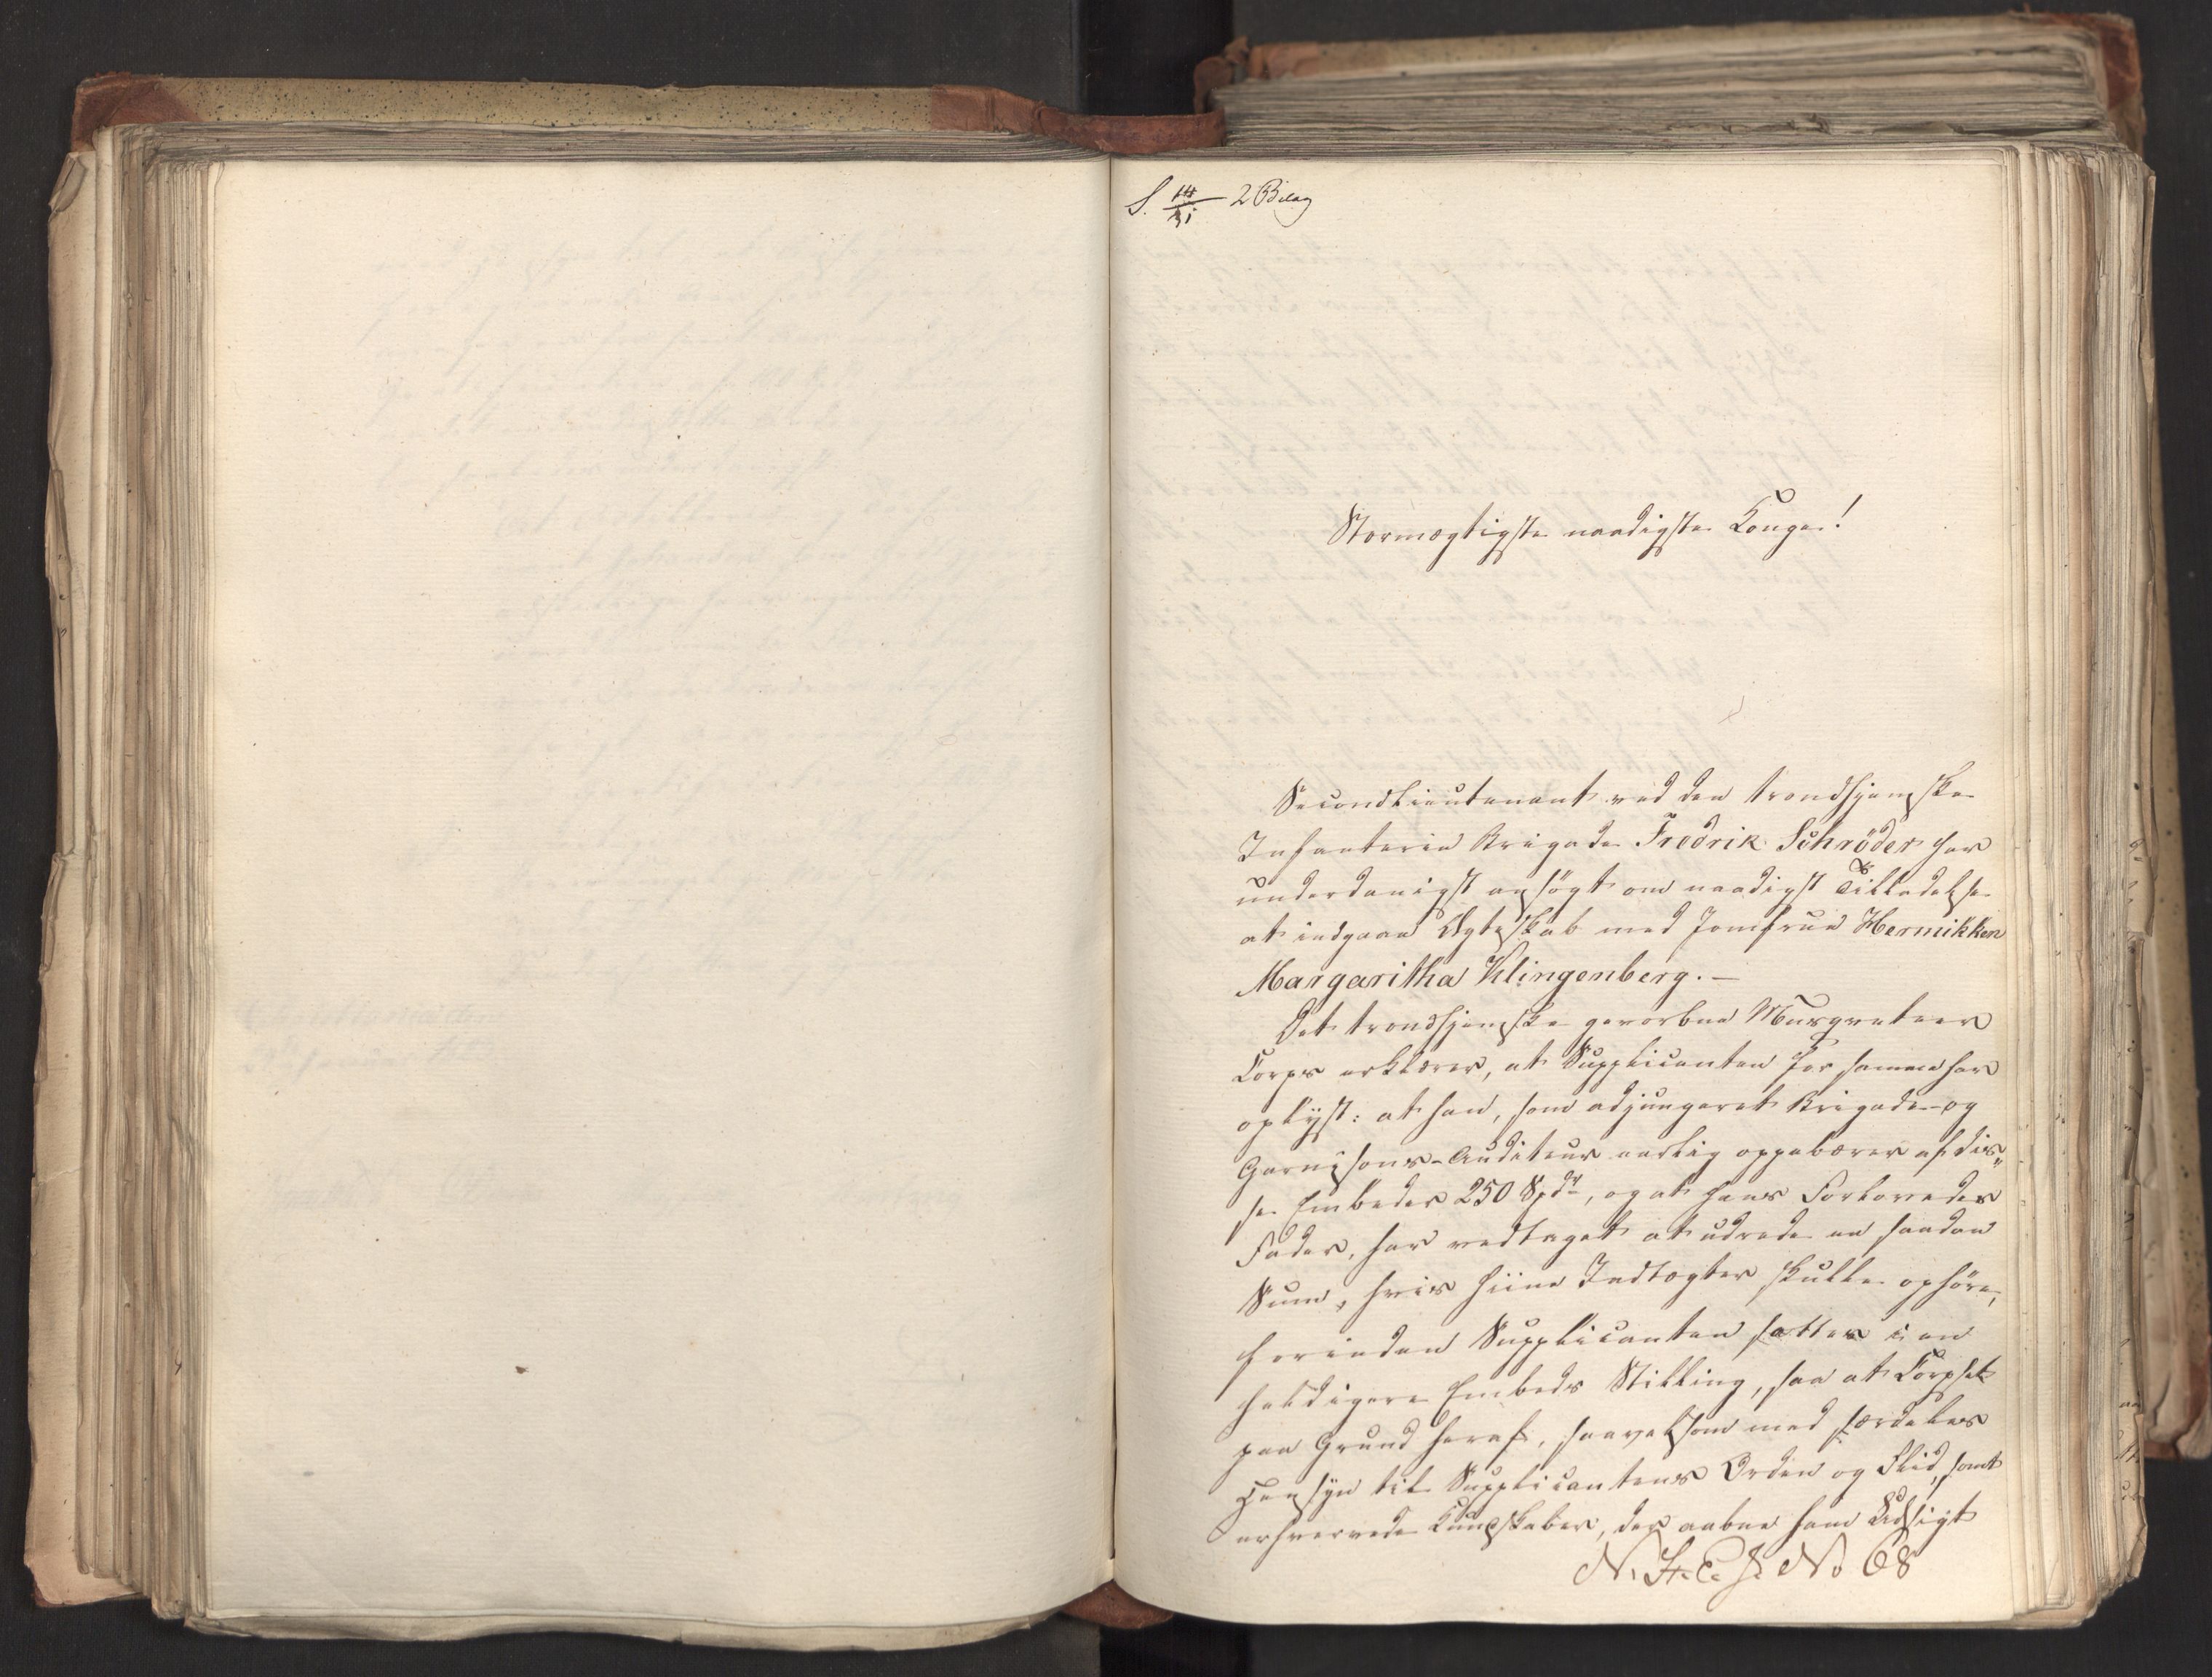 2 Bilag
Stormægtigste naadigste Konge!
Secondlieutenant ved den trondhjemske
Infanterie Brigade Fredrik Schröder har
underdanigst ansögt om naadigst Tilladelse
at indgaae Ægteskab med Jomfrue Hermikken
Margaritha Klingenberg. —
Det trondhjemske gevorbne Musqueteer
Corps erklærer, at Supplicanten for samme har
oplyst: at han, som adjungeret Brigade- og
Garnisons-Auditeur aarlig oppebærer af dis„
se Embeder 250 Spdr, og at hans Forlovedes
Fader, har vedtaget at udrede en saadan
Sum, hvis hiine Indtægter skulle ophöre,
forinden Supplicanten sættes i en
heldigere Embeds Stilling, saa at Corpset
paa Grund heraf, saavelsom med særdeles
Hensyn til Supplicantens Orden og Flid, samt
erhvervede Kundskaber, der aabne ham Udsigt
No 68